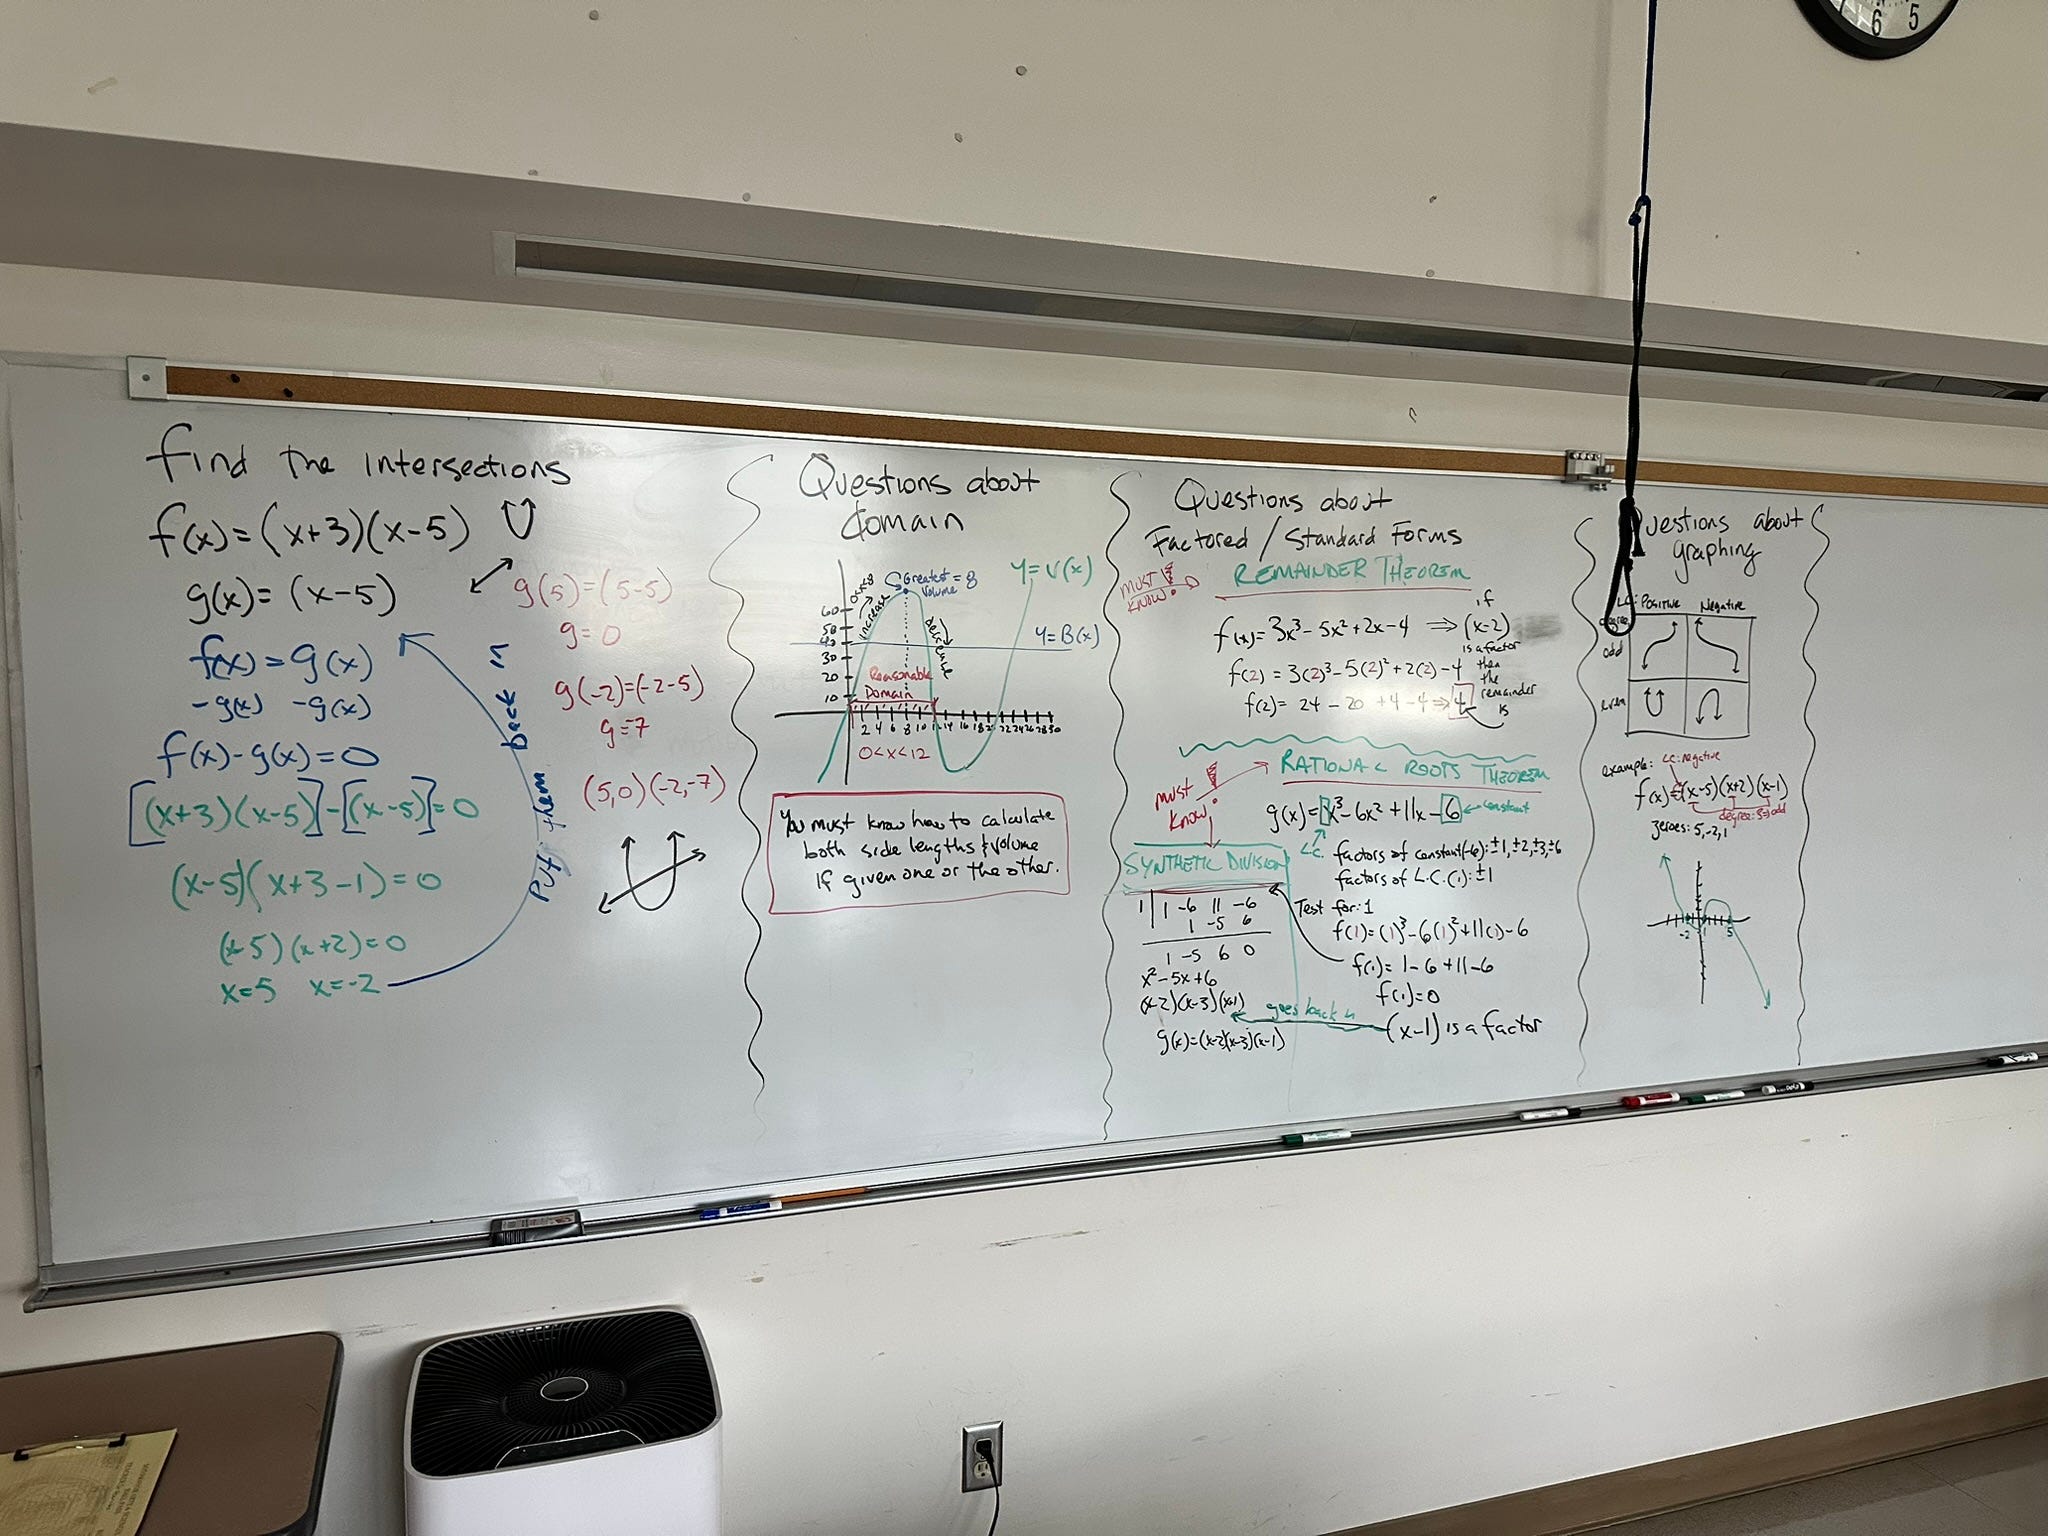 find the intersections
f(x)=(x+3)(x-5)
g(x)=(x-5)
f(x)=g(x)
-g(x) -g(x)
f(x)-g(x)=0
[(x+3)(x-5)]-[(x-5)]=0
(x-5)(x+3-1)=0
(x-5)(x+2)=0
x=5 x=-2
Put them back in
g(5)=(5-5)
g=0
g(-2)=(-2-5)
g=7
(5,0)(-2,-7)
Questions about
domain
0<x<8
increase
Greatest = 8
Volume
decrease
y=V(x)
y=B(x)
60
50
40
30
20
10
Reasonable
Domain
2 4 6 8 10 12 14 16 18 2 22 24 26 28 30
0<x<12
You must know how to calculate
both side lengths & volume
if given one or the other.
Questions about
Factored / Standard Forms
MUST
KNOW!
REMAINDER THEOREM
f(x)=3x³-5x²+2x-4 ⇒ if (x-2)
is a factor
then
the
remainder
is
f(2)=3(2)³-5(2)²+2(2)-4
f(2)= 24 - 20 +4-4 ⇒ 4
MUST
KNOW!
RATIONAL ROOTS THEOREM
g(x)=x³-6x²+11x-6 ← constant
L.C.
factors of constant(-6): ±1, ±2, ±3, ±6
factors of L.C.(1): ±1
SYNTHETIC DIVISION
1 | 1 -6 11 -6
1 -5 6
1 -5 6 0
x²-5x+6
(x-2)(x-3)(x-1)
g(x)=(x-2)(x-3)(x-1)
Test for: 1
f(1)=(1)³-6(1)²+11(1)-6
f(1)=1-6+11-6
f(1)=0
(x-1) is a factor
goes back in
Questions about
graphing
LC: Positive Negative
degree
odd
even
example: LC: negative
f(x)=-(x-5)(x+2)(x-1)
degree: 3 ⇒ odd
Zeroes: 5,-2,1
-2 1 5
6 5